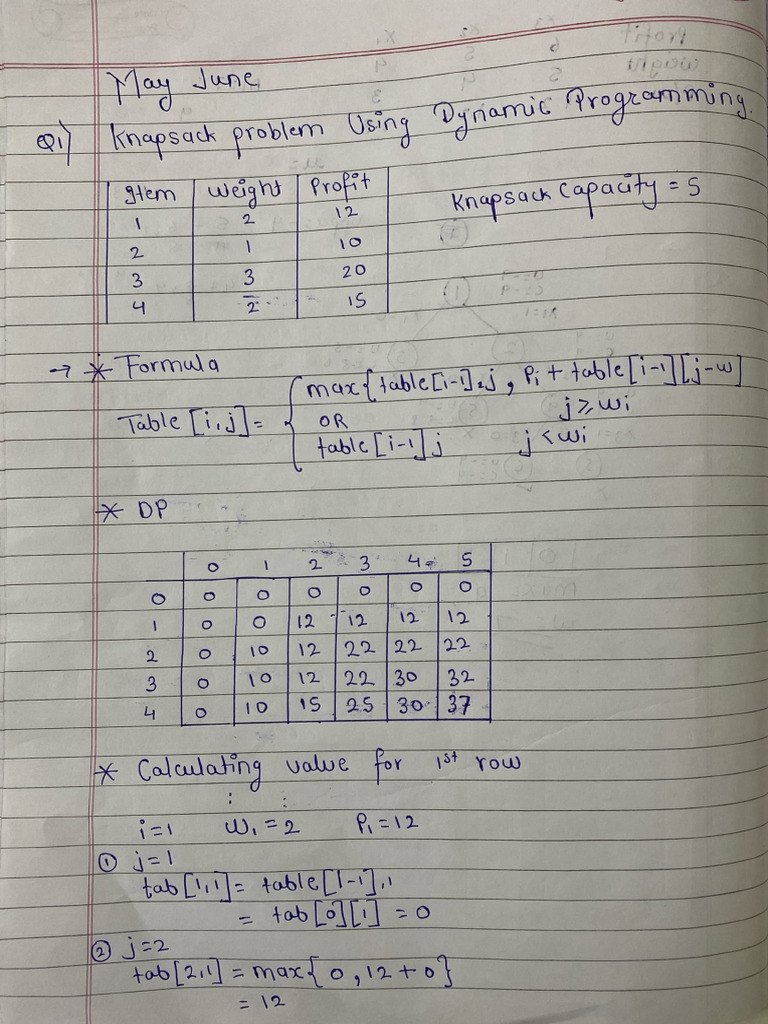 May June
Q1) Knapsack problem Using Dynamic Programming.
Item Weight Profit
Knapsack Capacity = 5
1 2 12
2 1 10
3 3 20
4 2 15
→ * Formula
Table [i,j] = { max{table[i-1],j , Pi + table[i-1][j-w]
j ≥ wi
OR
table[i-1]j j < wi
* DP
0 1 2 3 4 5
0 0 0 0 0 0 0
1 0 0 12 12 12 12
2 0 10 12 22 22 22
3 0 10 12 22 30 32
4 0 10 15 25 30 37
* Calculating value for 1st row
: :
i=1 W1=2 P1=12
① j=1
tab[1,1] = table[1-1],1
= tab[0][1] = 0
② j=2
tab[2,1] = max{0,12+0}
= 12